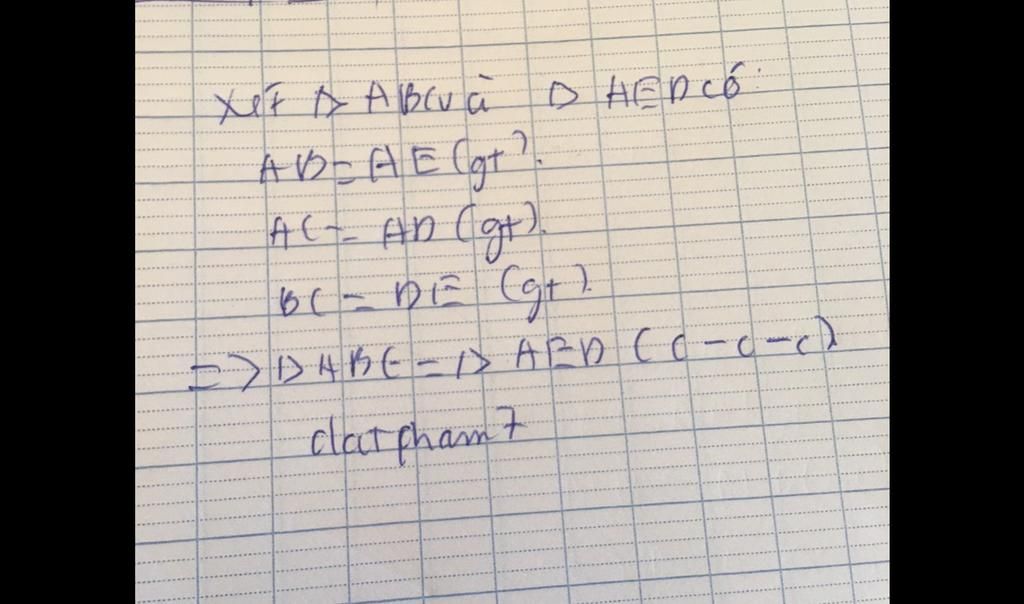 Xét Δ ABC và Δ AED có:
AB = AE (gt).
AC = AD (gt).
BC = DE (gt).
=> Δ ABC = Δ AED (c-c-c)
datpham7